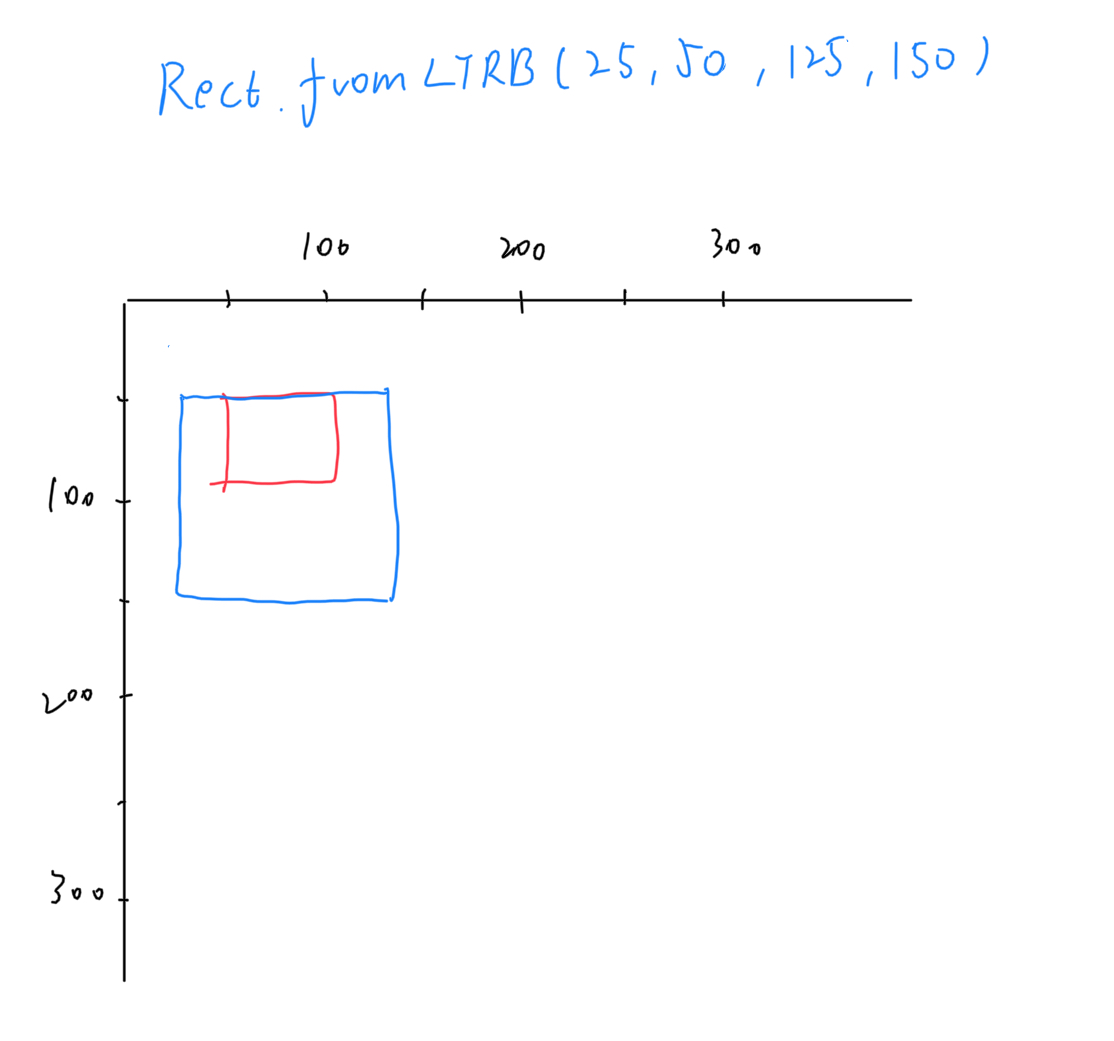 Rect.fromLTRB(25,50,125,150)
100 200 300
100
200
300